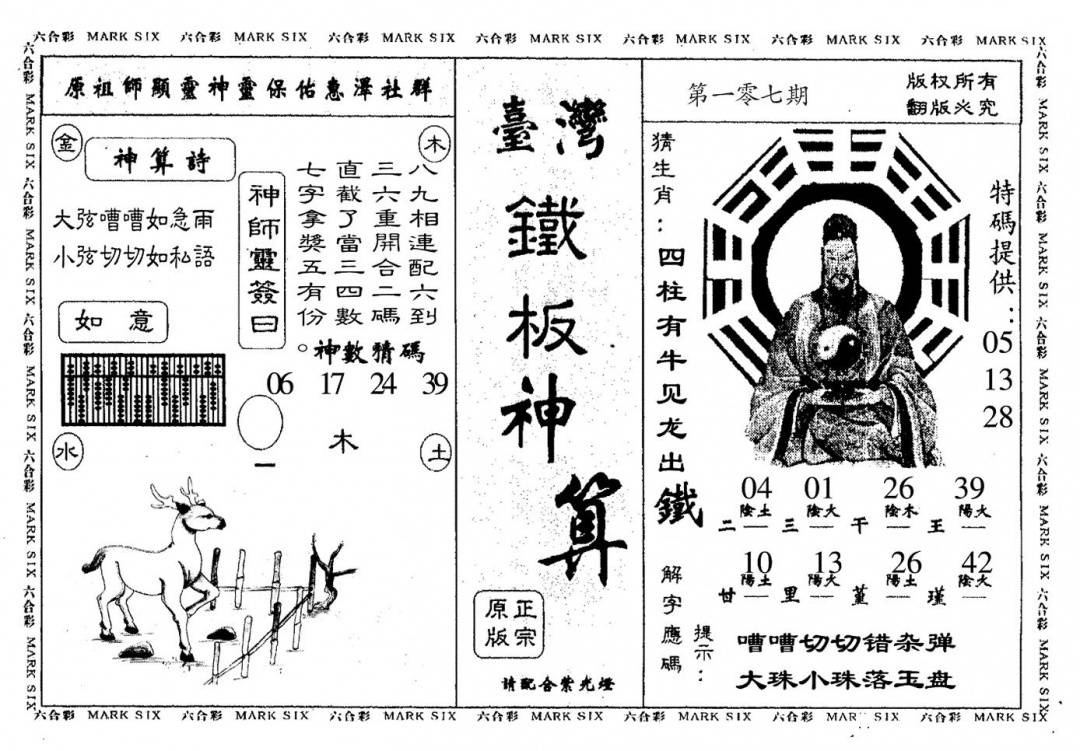 六合彩 MARK SIX 六合彩 MARK SIX 六合彩 MARK SIX 六合彩 MARK SIX 六合彩 MARK SIX 六合彩 MARK SIX 六合彩 MARK SIX
六合彩 MARK SIX 六合彩 MARK SIX 六合彩 MARK SIX 六合彩 MARK SIX 六合彩 MARK SIX
原祖師顯靈神靈保佑惠澤社群
金
木
神算詩
大弦嘈嘈如急雨
小弦切切如私語
如意
神師靈簽曰
八九相連配六到
三六重開合二碼
直截了當三四數
七字拿獎五有份。
神數猜碼
06 17 24 39
木
一
水
土
臺灣
鐵板神算
正宗
原版
請配合紫光燈
第一零七期
版权所有
翻版必究
猜生肖：四柱有牛见龙出鐵
特碼提供：
05
13
28
04 01 26 39
陰土 陰火 陰木 陽火
二 一 三 一 干 一 王 一
10 13 26 42
陽土 陽火 陽土 陰火
甘 一 里 一 堇 一 瑾 一
解字應碼
提示：
嘈嘈切切错杂弹
大珠小珠落玉盘
六合彩 MARK SIX 六合彩 MARK SIX 六合彩 MARK SIX 六合彩 MARK SIX 六合彩 MARK SIX
六合彩 MARK SIX 六合彩 MARK SIX 六合彩 MARK SIX 六合彩 MARK SIX 六合彩 MARK SIX 六合彩 MARK SIX 六合彩 MARK SIX